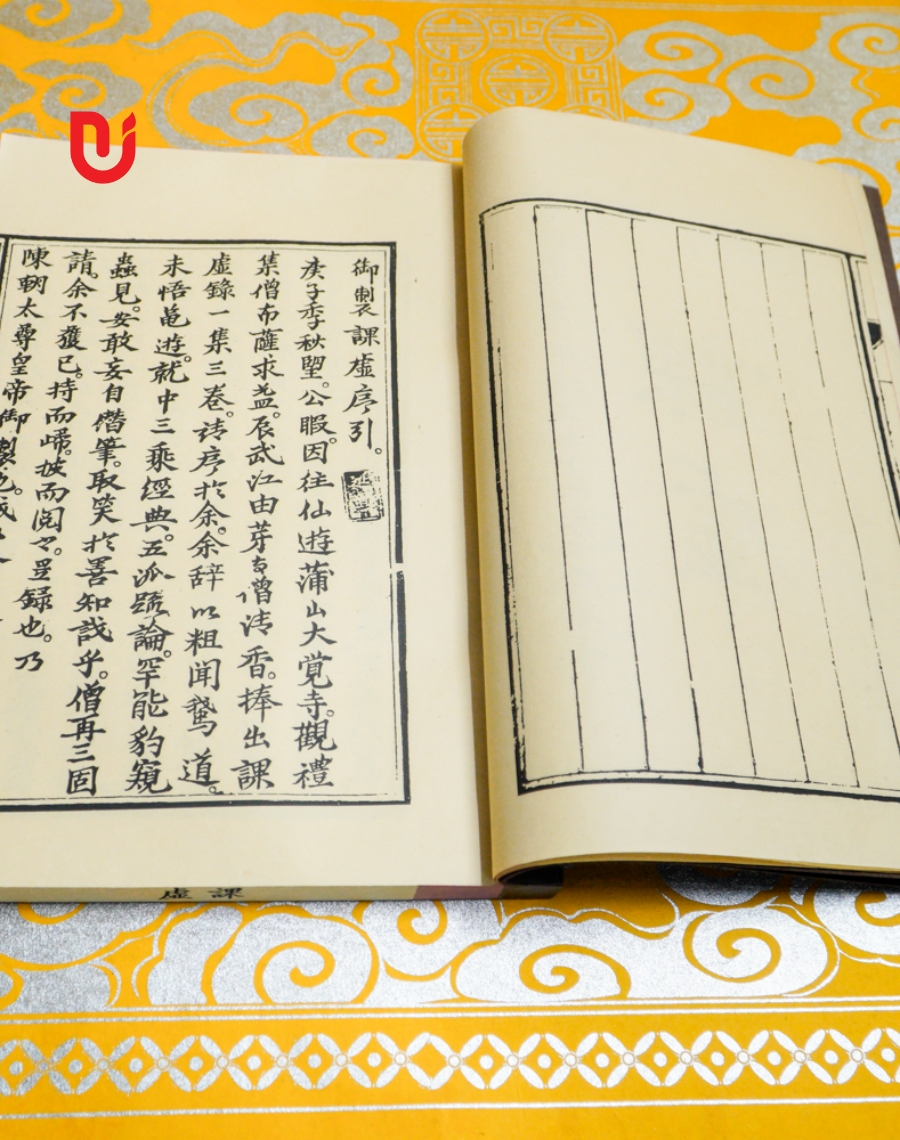 御製課虛序引。
庚子季秋望。公暇因往仙遊蒲山大覚寺。觀禮
集僧布薩求益。辰武江由芽寺僧清香。捧出課
虛錄一集三卷。請序於余。余辞以粗聞鵞道。
未悟黽遊。就中三乘經典。五派䟽論。罕能豹窺
蟲見。安敢妄自僭筆。取笑於善知識乎。僧再三固
請。余不獲已。持而歸。披而閲々。是録也。乃
陳朝太尊皇帝御製也。
虛課